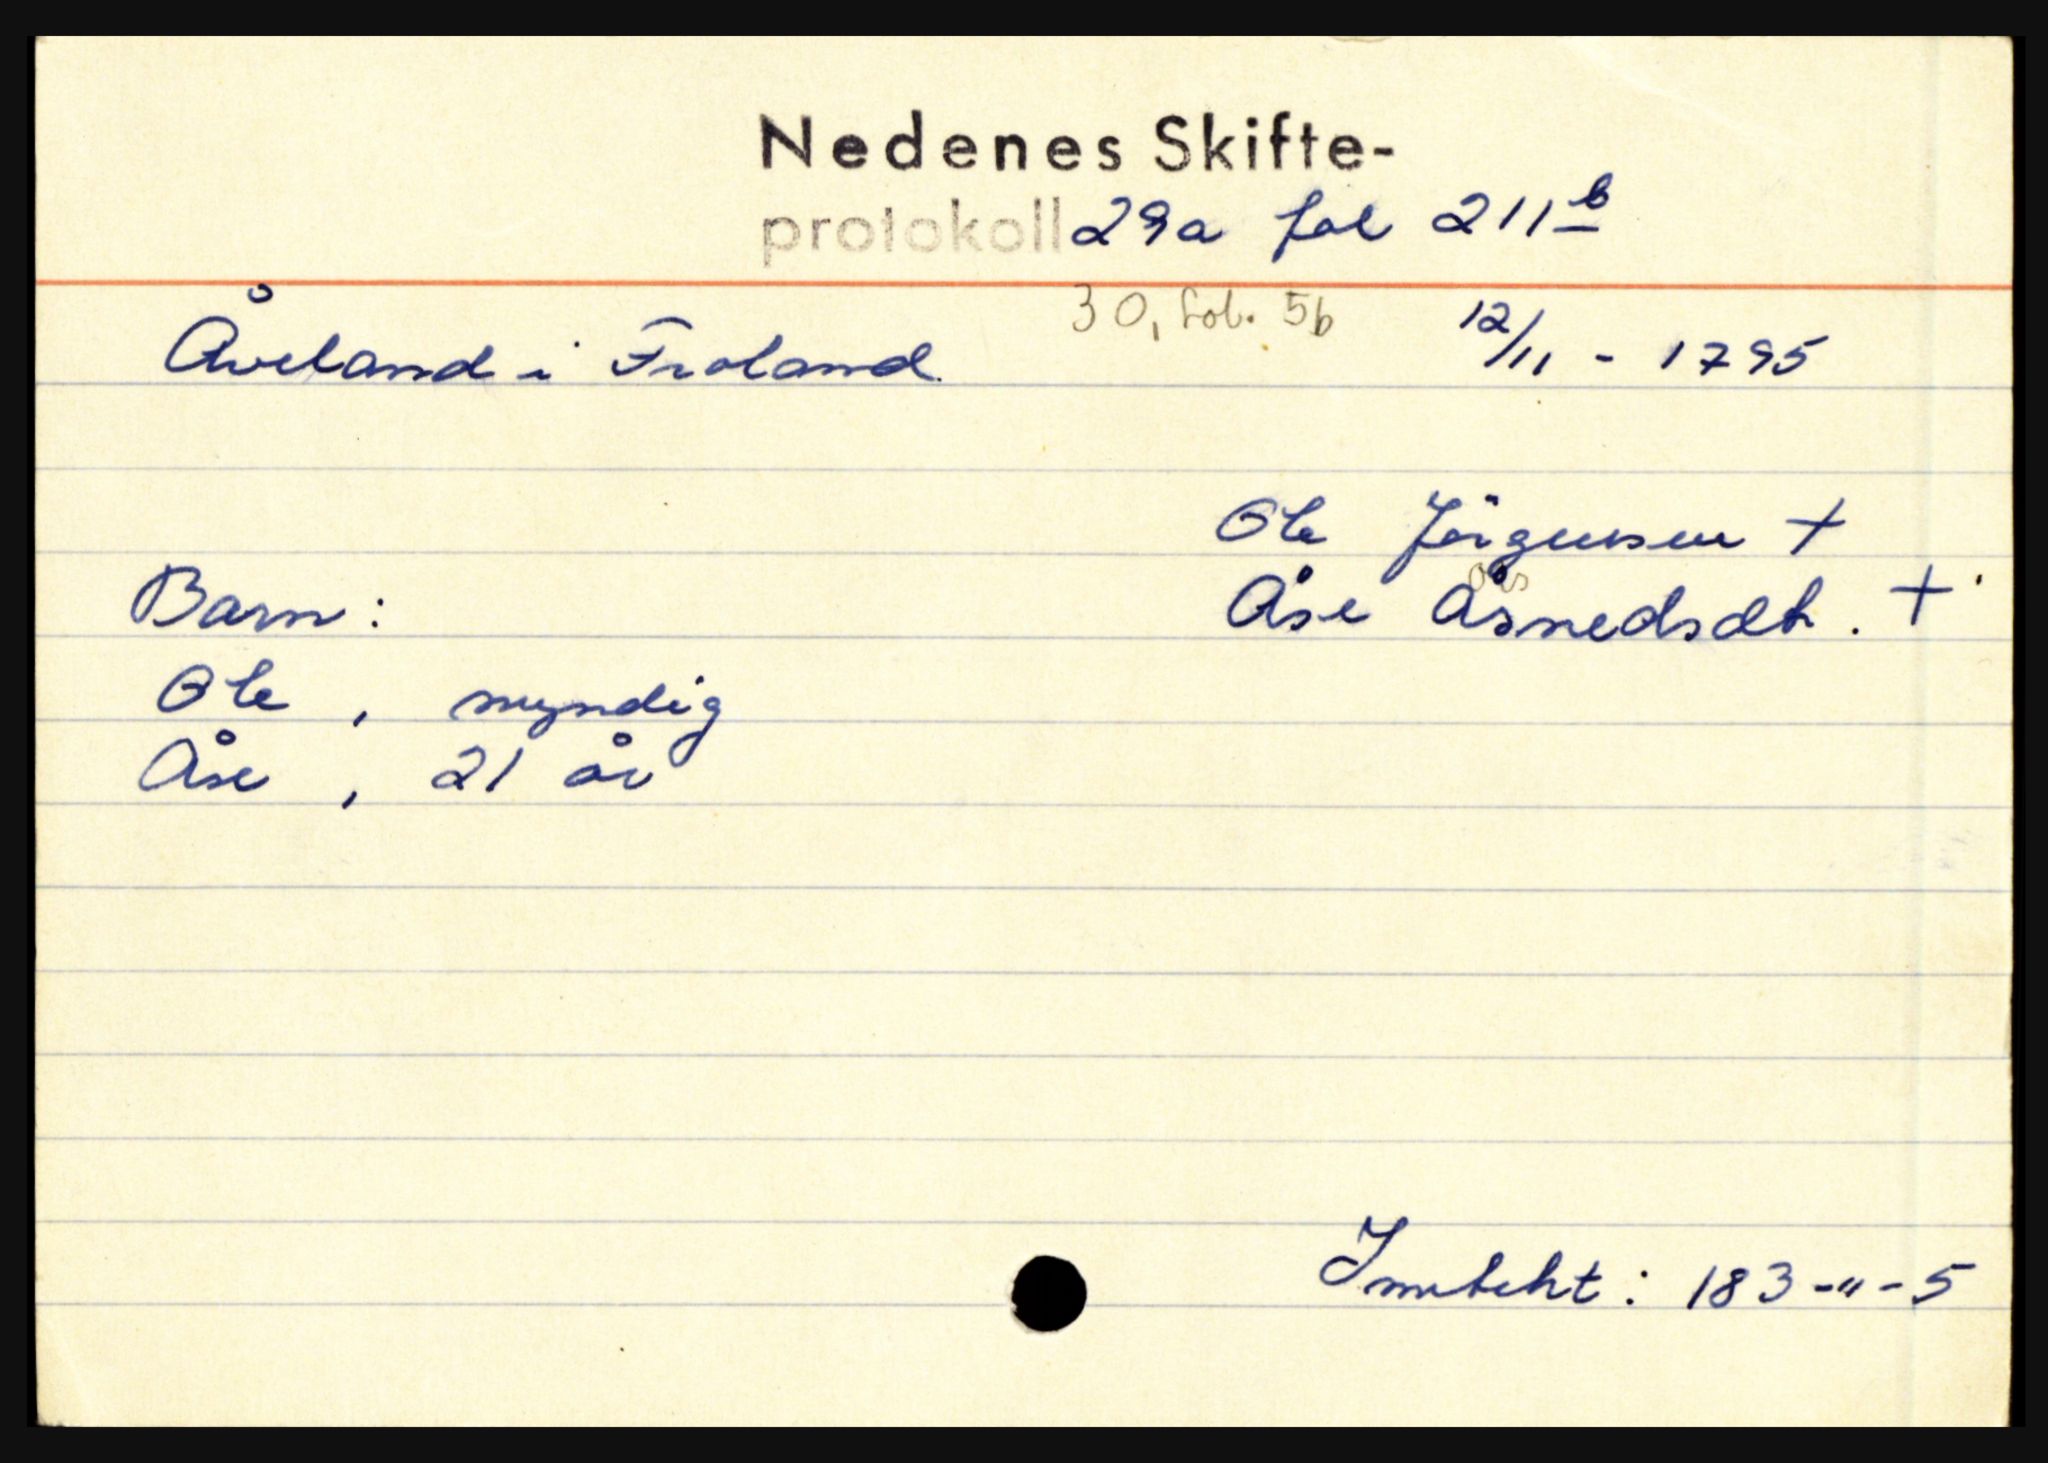 Nedenes Skifte-
protokoll 29a fol 211b
30, fol. 5b
Åveland i Froland 12/11 - 1795
Ole Jörgensen +
Åse Åsnedsdt. +
Barn:
Ole , myndig
Åse , 21 år
Inntekt: 183-"-5